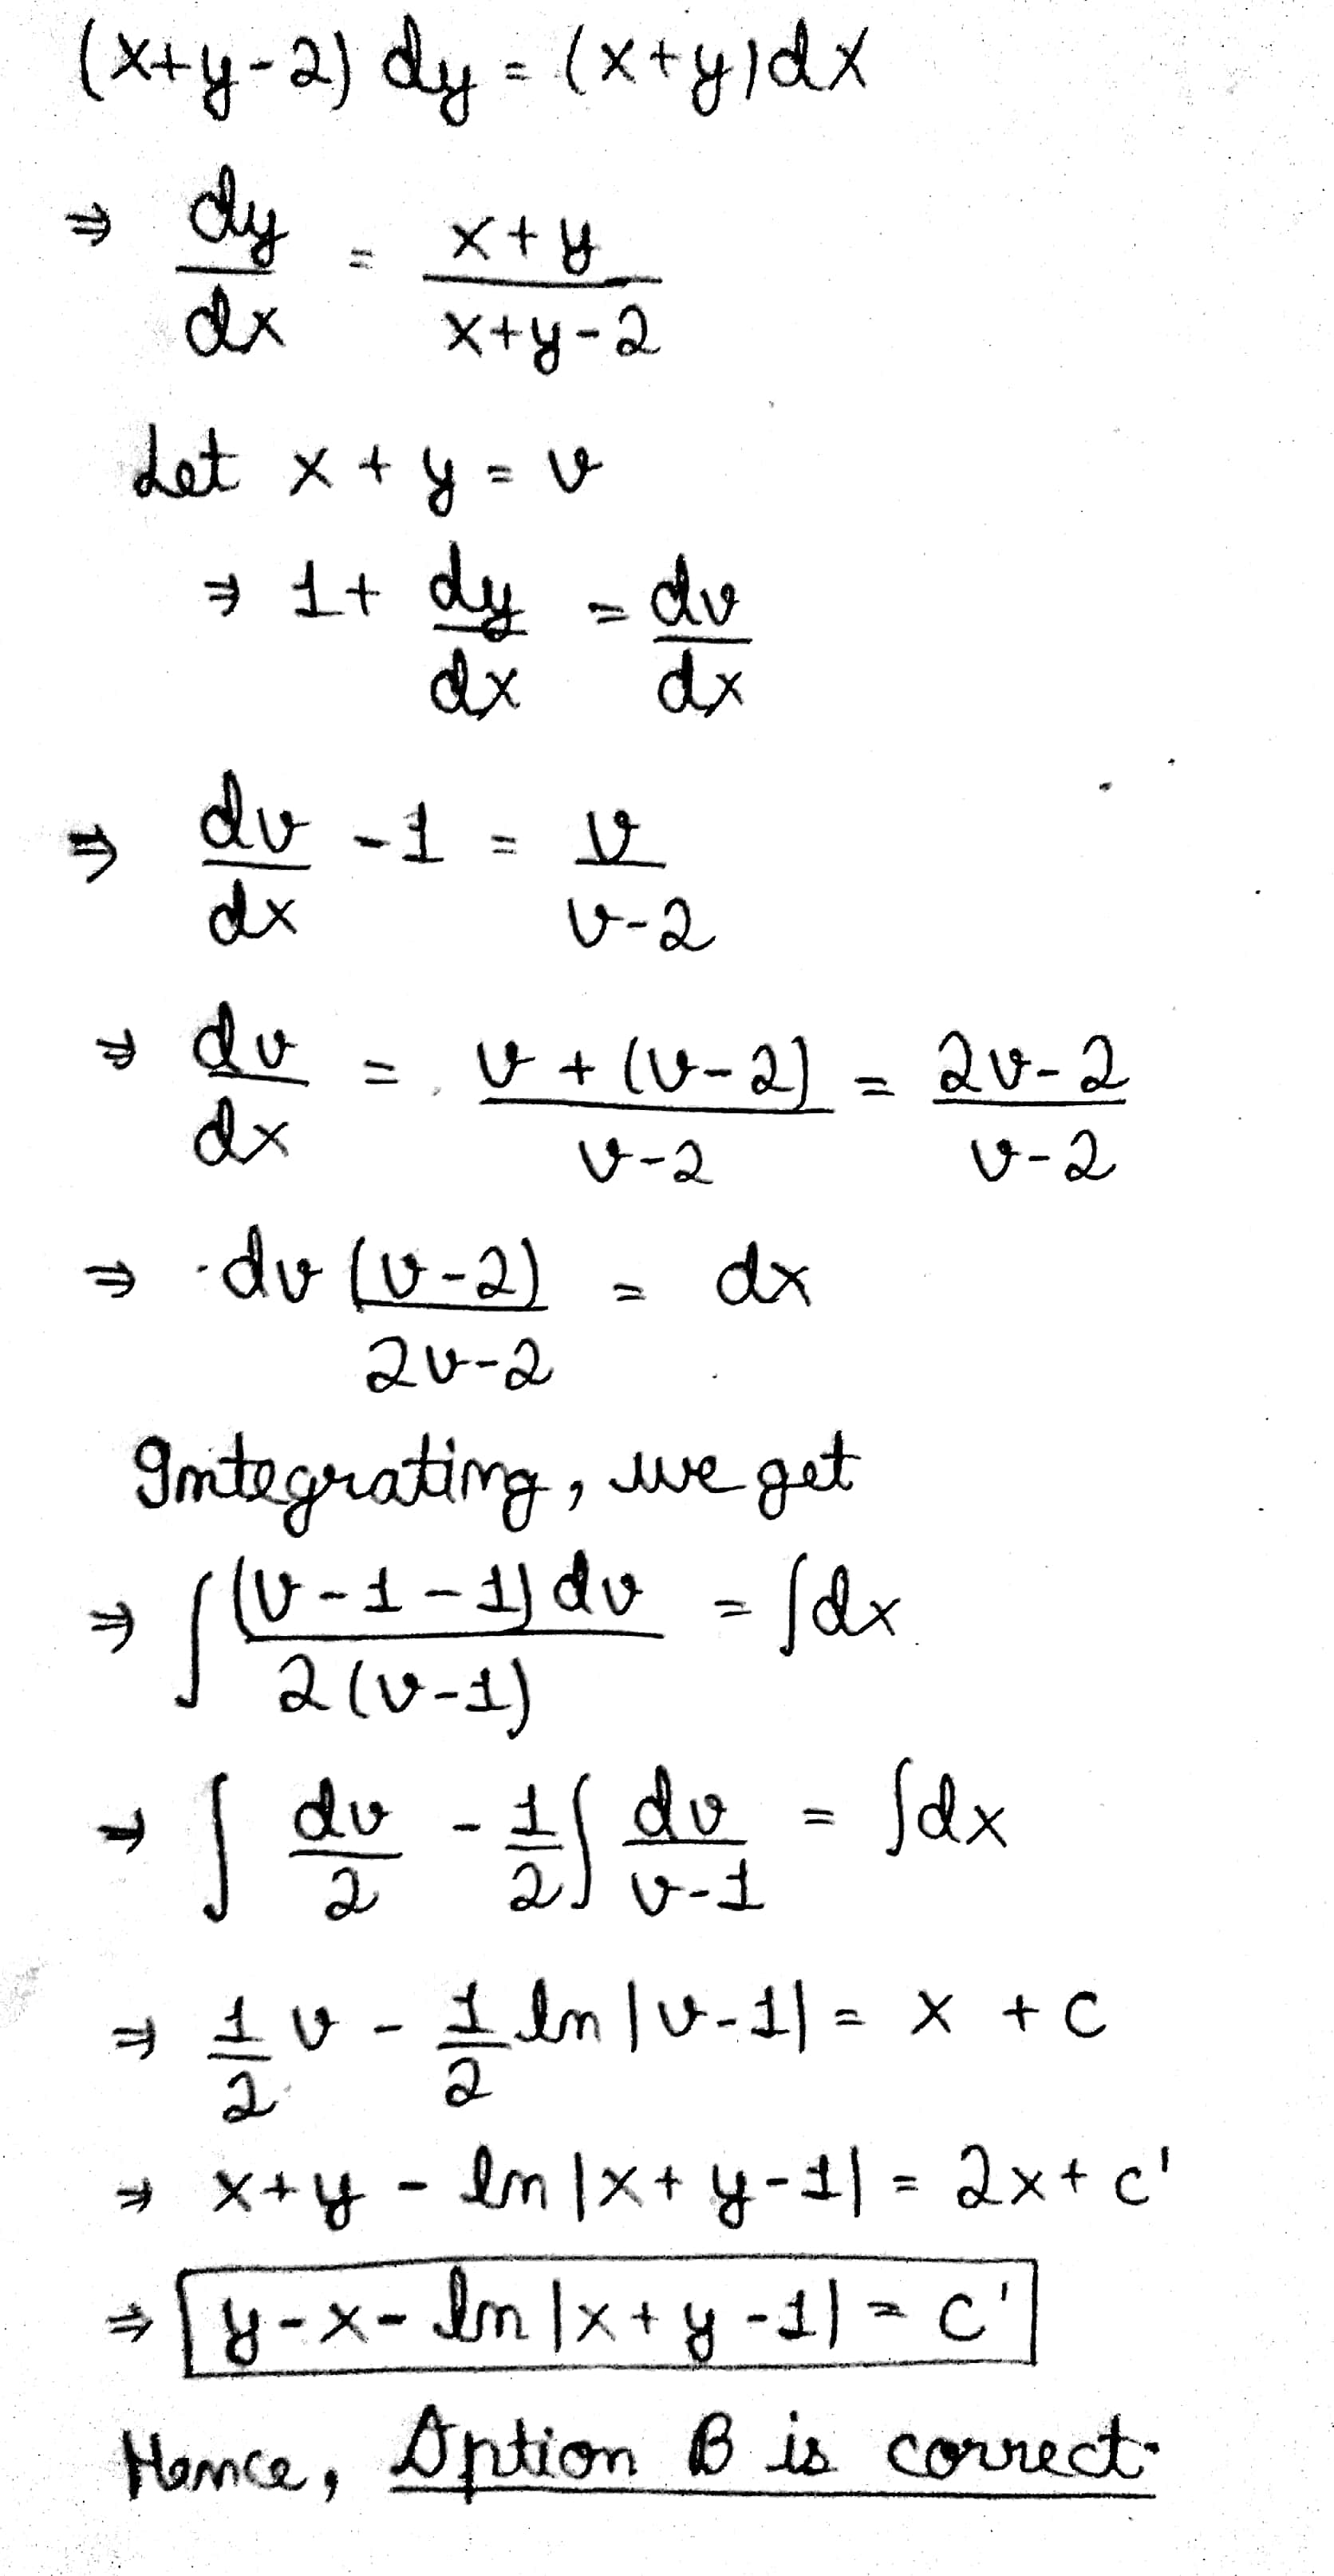 (x+y-2) dy = (x+y)dx
⇒ dy/dx = x+y/x+y-2
Let x+y = v
⇒ 1+ dy/dx = dv/dx
⇒ dv/dx - 1 = v/v-2
⇒ dv/dx = v+(v-2)/v-2 = 2v-2/v-2
⇒ dv (v-2)/2v-2 = dx
Integrating, we get
⇒ ∫ (v-1-1) dv/2(v-1) = ∫dx
⇒ ∫ dv/2 - 1/2 ∫ dv/v-1 = ∫dx
⇒ 1/2 v - 1/2 ln|v-1| = x + c
⇒ x+y - ln|x+y-1| = 2x + c'
⇒ y-x- ln|x+y-1| = c'
Hence, Option B is correct.